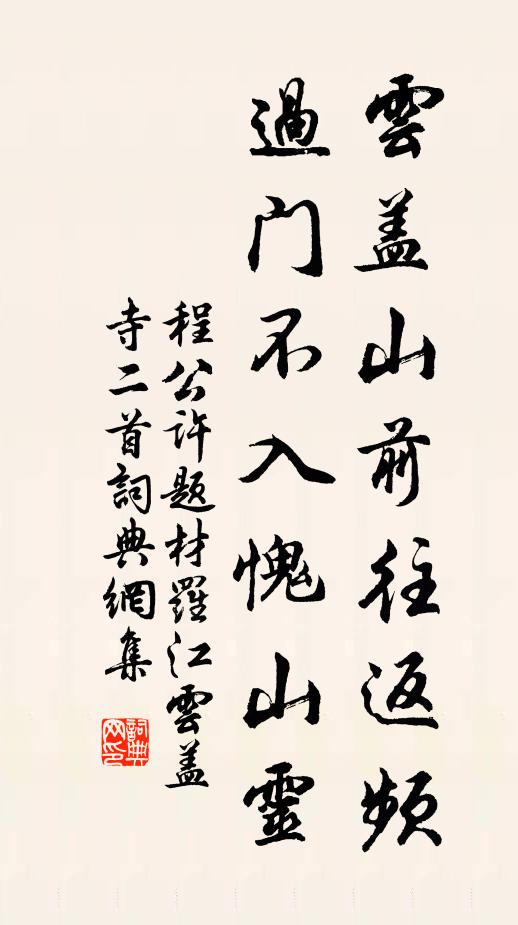 雲盖山前往返頻
過門不入愧山靈
程公許題材羅江雲盖
寺二首詞典網集
詞典网印